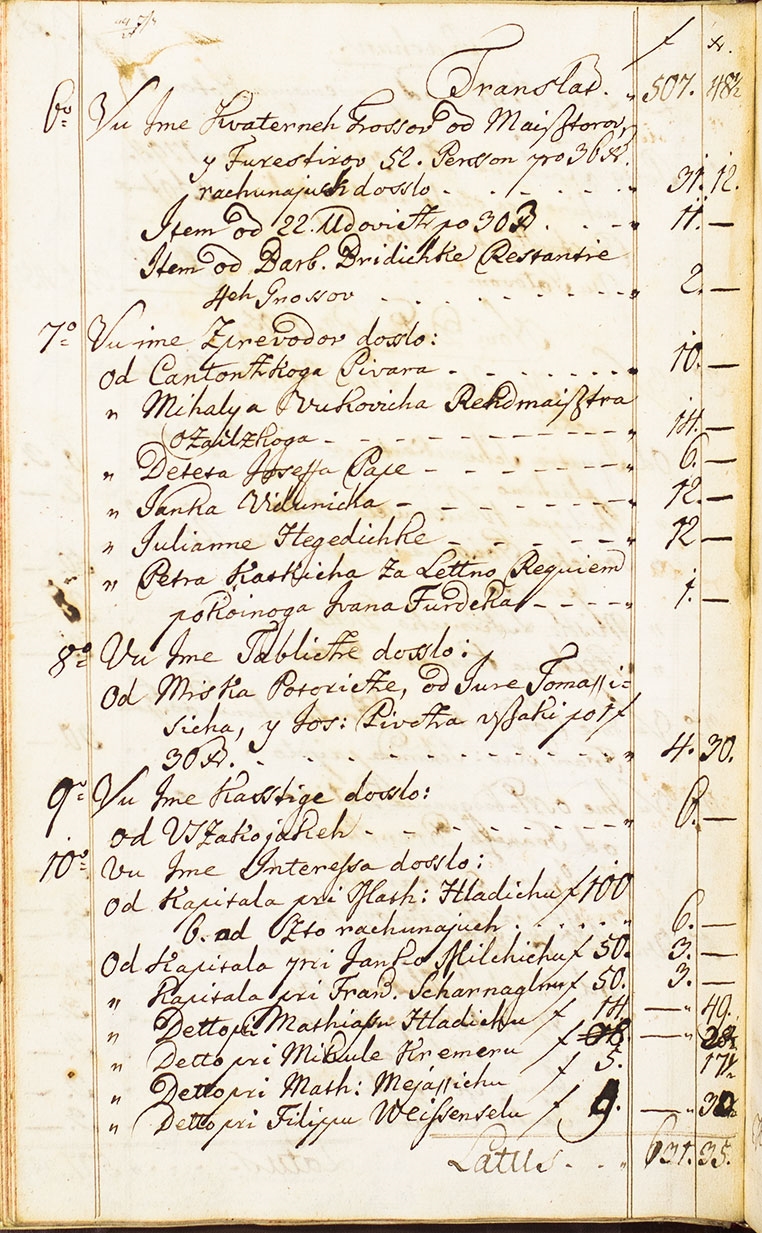 f xr.
Translat. " 507. 48½
6o Vu Ime Kvaterneh Grossov od Maisztorov,
y Furestirov 52. Person pro 36 xr.
rachunajuch dosslo - - - - - " 31. 12.
Item od 22. Udovicz po 30 xr. - - " 11. —
Item od Barb. Bridichke Restantie
4eh Grossov - - - - - - - " 2. —
7o Vu ime Zprevodov dosslo:
od Cantorszkoga Pivara - - - - - - " 10. —
" Mihalya Vukovicha Rehdmaisztra
Ozailzkoga - - - - - - - - " 14. —
" Deteta Joseffa Pape - - - - - - " 6. —
" Janka Vidunicha - - - - - - - " 12. —
" Julianne Hegedichke - - - - - " 12 —
" Petra Kaskicha za Lettno Requiem
pokoinoga Ivana Furdeka - - - - " 1. —
8o Vu Ime Tablicze dosslo:
Od Miska Potoricze, od Jure Tomassi=
sicha, y Jos: Pivcza vszaki po 1 f
30 xr. - - - - - - - - - " 4. 30.
9o Vu Ime Kasstige dosslo:
od Vszakojakeh - - - - - - - " 6. —
10o Vu Ime Interessa dosslo:
od Kapitala pri Math: Hladichu f 100
6. od Szto rachunajuch - - - - " 6. —
Od Kapitala pri Janko Milchichu f 50. 3. —
" Kapitala pri Fran. Scharnaglu f 50. 3. —
" Detto pri Mathiassu Hladichu f 14. — " 49.
" Detto pri Mikule Kremeru f — " 28½
" Detto pri Math: Mejassichu f 5. 17½
" Detto pri Filippu Weissenselu f 9. — " 30
Latus - - " 631. 35.